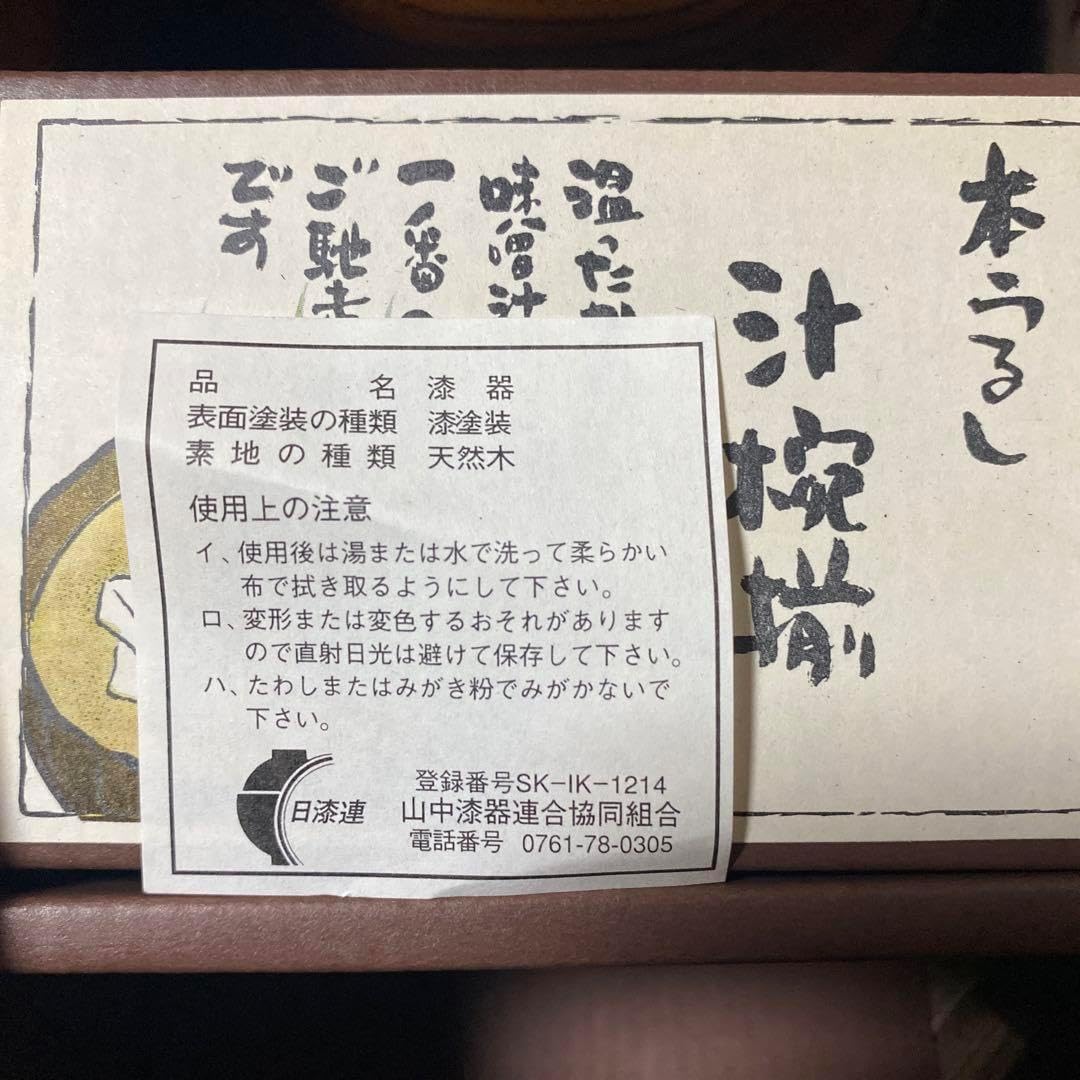 本うるし
汁椀揃
温った
味噌汁
一番
ご馳走
です
品名 漆器
表面塗装の種類 漆塗装
素地の種類 天然木
使用上の注意
イ、使用後は湯または水で洗って柔らかい
布で拭き取るようにして下さい。
ロ、変形または変色するおそれがあります
ので直射日光は避けて保存して下さい。
ハ、たわしまたはみがき粉でみがかないで
下さい。
日漆連
登録番号SK-IK-1214
山中漆器連合協同組合
電話番号 0761-78-0305